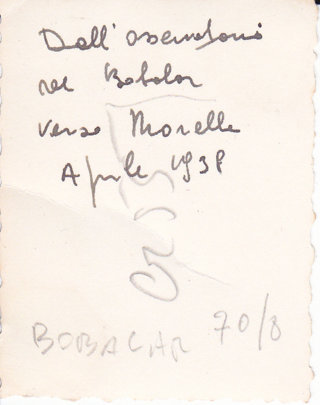 Dall'osservatorio
nel Bobalar
verso Morella
Aprile 1938
BOBALAR 70/8